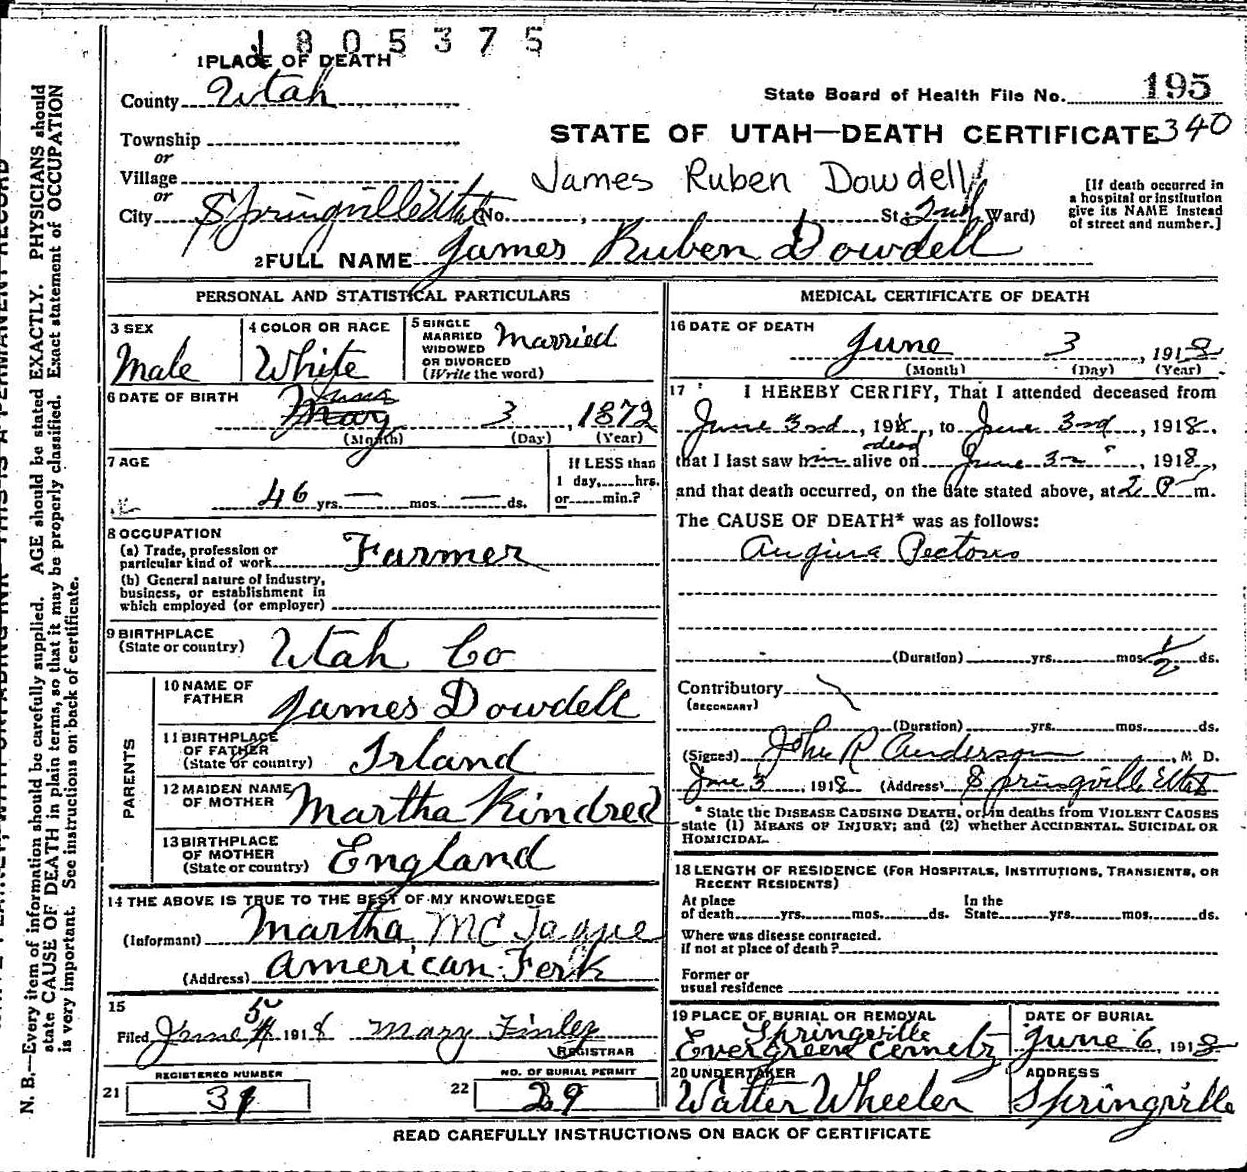 1805375
1 PLACE OF DEATH
County Utah
State Board of Health File No. 195
Township
STATE OF UTAH—DEATH CERTIFICATE 340
or
Village
James Ruben Dowdell
or
City Springville Utah (No. , St; 2nd Ward)
[If death occurred in
a hospital or institution
give its NAME instead
of street and number.]
2 FULL NAME James Ruben Dowdell
PERSONAL AND STATISTICAL PARTICULARS
3 SEX
Male
4 COLOR OR RACE
White
5 SINGLE
MARRIED
WIDOWED
OR DIVORCED
(Write the word)
Married
6 DATE OF BIRTH
June
May 3, 1872
(Month) (Day) (Year)
7 AGE
46 yrs. — mos. — ds.
If LESS than
1 day, hrs.
or min.?
8 OCCUPATION
(a) Trade, profession or
particular kind of work
Farmer
(b) General nature of industry,
business, or establishment in
which employed (or employer)
9 BIRTHPLACE
(State or country)
Utah Co
PARENTS
10 NAME OF
FATHER
James Dowdell
11 BIRTHPLACE
OF FATHER
(State or country)
Irland
12 MAIDEN NAME
OF MOTHER
Martha Kindred
13 BIRTHPLACE
OF MOTHER
(State or country)
England
14 THE ABOVE IS TRUE TO THE BEST OF MY KNOWLEDGE
(Informant) Martha McTague
(Address) American Fork
15
Filed June 5 1918 Mary Finley
REGISTRAR
REGISTERED NUMBER
21
NO. OF BURIAL PERMIT
22 29
MEDICAL CERTIFICATE OF DEATH
16 DATE OF DEATH
June 3, 1918
(Month) (Day) (Year)
17 I HEREBY CERTIFY, That I attended deceased from
June 3rd, 1918, to June 3rd, 1918,
dead
that I last saw him alive on June 3, 1918,
and that death occurred, on the date stated above, at 2 P m.
The CAUSE OF DEATH* was as follows:
Angina Pectoris
(Duration) yrs. mos. 1/2 ds.
Contributory
(SECONDARY)
(Duration) yrs. mos. ds.
(Signed) John R Anderson, M D.
June 3, 1918 (Address) Springville Utah
* State the DISEASE CAUSING DEATH, or, in deaths from VIOLENT CAUSES
state (1) MEANS OF INJURY; and (2) whether ACCIDENTAL, SUICIDAL OR
HOMICIDAL.
18 LENGTH OF RESIDENCE (FOR HOSPITALS, INSTITUTIONS, TRANSIENTS, OR
RECENT RESIDENTS)
At place
of death yrs. mos. ds.
In the
State yrs. mos. ds.
Where was disease contracted.
if not at place of death?
Former or
usual residence
19 PLACE OF BURIAL OR REMOVAL
Springville
Evergreen Cemetry
DATE OF BURIAL
June 6, 1918
20 UNDERTAKER
Walter Wheeler
ADDRESS
Springville
READ CAREFULLY INSTRUCTIONS ON BACK OF CERTIFICATE
N. B.—Every item of information should be carefully supplied. AGE should be stated EXACTLY. PHYSICIANS should
state CAUSE OF DEATH in plain terms, so that it may be properly classified. Exact statement of OCCUPATION
is very important. See instructions on back of certificate.